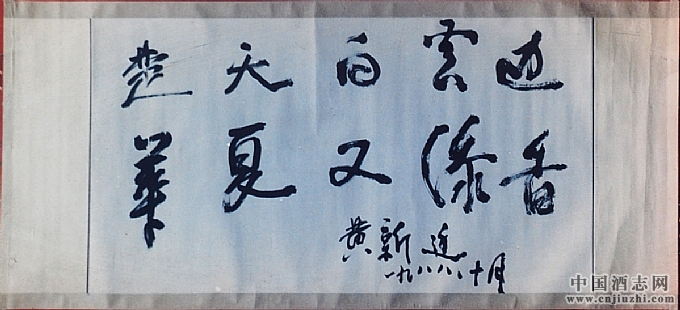 楚天白雲边
華夏又添香
黄新廷
一九八八、十月
中国酒志网
www.cnjiuzhi.com